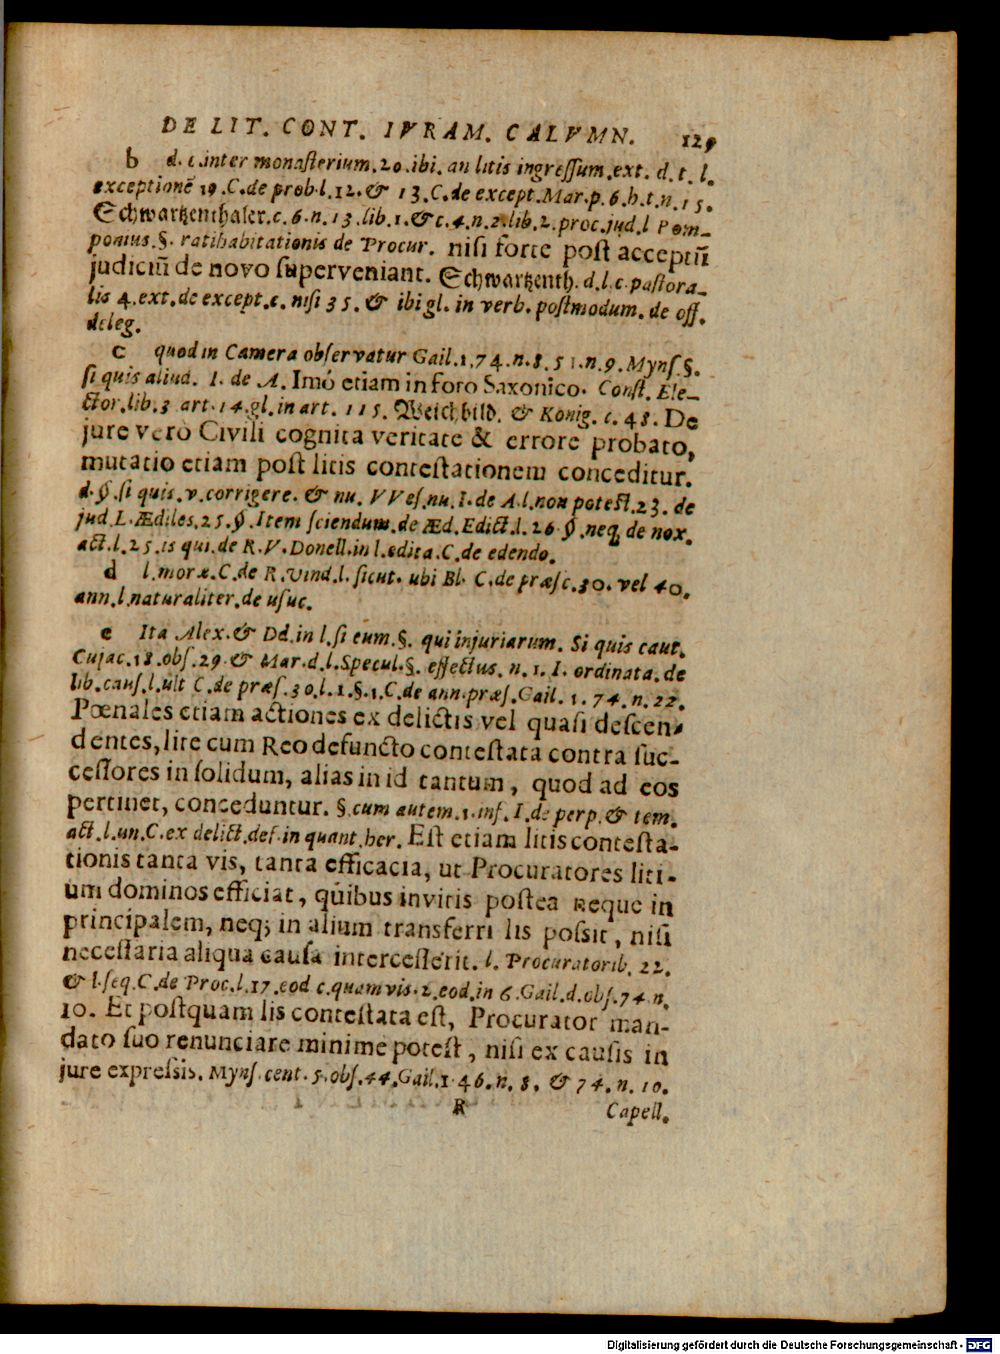 DE LIT. CONT. IVRAM. CALVMN. 129
b d. c. inter monasterium. 20. ibi. an litis ingressum. ext. d. t. l.
exceptionē 19. C. de prob. l. 12. & 13. C. de except. Mar. p. 6. h. t. n. 15.
Schwartzenthaler. c. 6. n. 13. lib. 1. & c. 4. n. 2. lib. 2. proc. jud. l Pom-
ponius. §. ratihabitationis de Procur. nisi forte post acceptū
judiciū de novo superveniant. Schwartzenth. d. l. c. pastora-
lis 4. ext. de except. c. nisi 35. & ibi gl. in verb. postmodum. de off.
deleg.
c quod in Camera observatur Gail. 1. 74. n. 8. 51. n. 9. Myns. §.
si quis aliud. I. de A. Imò etiam in foro Saxonico. Const. Ele-
ctor. lib. 3 art. 14. gl. in art. 115. Weichbild. & König. c. 48. De
jure verò Civili cognita veritate & errore probato,
mutatio etiam post litis contestationem conceditur.
d. §. si quis. v. corrigere. & nu. VVes. nu. I. de A. l. non potest. 23. de
jud. L. Ædiles. 25. §. Item sciendum. de Æd. Edict. l. 26 §. neq; de nox.
act. l. 25. is qui. de R. V. Donell. in l. edita. C. de edendo.
d l. moræ. C. de R. vind. l. sicut. ubi Bl. C. de præsc. 30. vel 40.
ann. l. naturaliter. de usuc.
e Ita Alex. & Dd. in l. si eum. §. qui injuriarum. Si quis caut.
Cujac. 18. obs. 29 & Mar. d. l. Specul. §. effectus. n. 1. I. ordinata. de
lib. caus. l. ult C. de præs. 30. l. 1. §. 1. C. de ann. præs. Gail. 1. 74. n. 22.
Pœnales etiam actiones ex delictis vel quasi descen-
dentes, lite cum Reo defuncto contestata contra suc-
cessores in solidum, alias in id tantum, quod ad eos
pertinet, conceduntur. §. cum autem. 1. inf. I. de perp. & tem.
act. l. un. C. ex delict. def. in quant. her. Est etiam litis contesta-
tionis tanta vis, tanta efficacia, ut Procuratores liti-
um dominos efficiat, quibus invitis postea neque in
principalem, neq; in alium transferri lis possit, nisi
necessaria aliqua causa intercesserit. l. Procuratorib. 22.
& l. seq. C. de Proc. l. 17. eod c. quamvis. 2. eod. in 6. Gail. d. obs. 74. n.
10. Et postquam lis contestata est, Procurator man-
dato suo renunciare minime potest, nisi ex causis in
jure expressis. Myns. cent. 5. obs. 44. Gail. 1. 46. n. 8. & 74. n. 10.
R Capell.
Digitalisierung gefördert durch die Deutsche Forschungsgemeinschaft - DFG